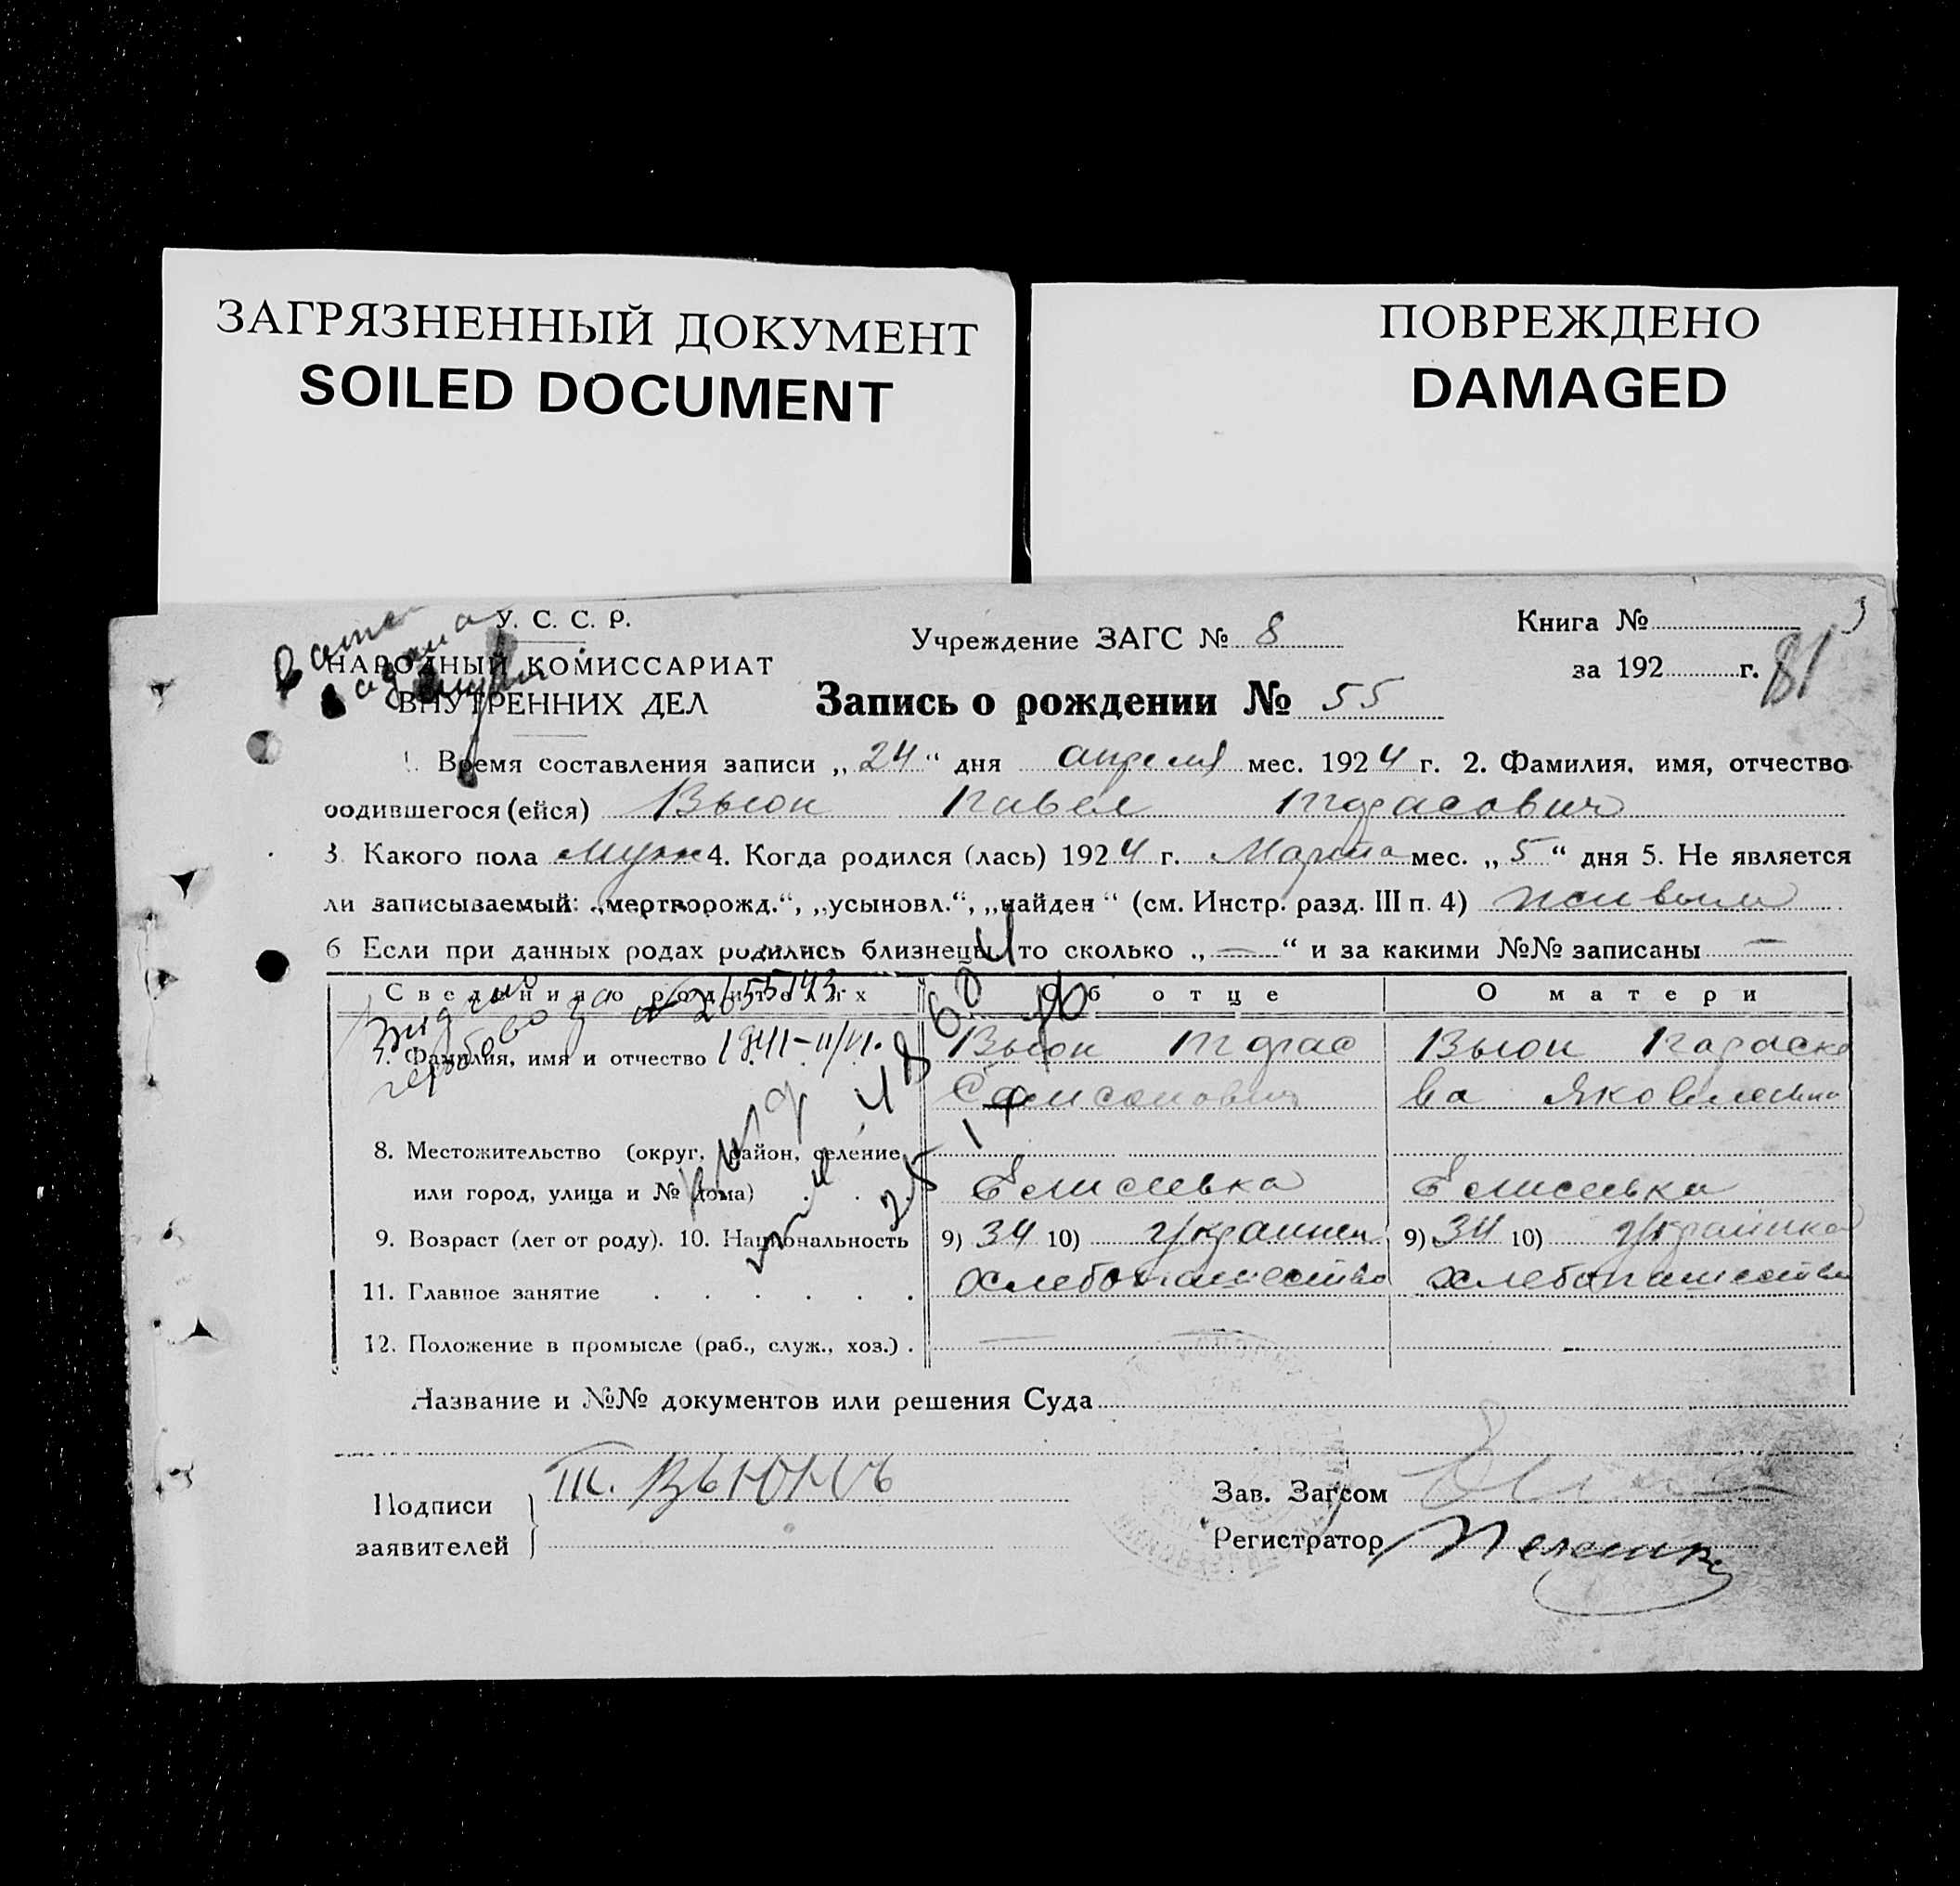 ЗАГРЯЗНЕННЫЙ ДОКУМЕНТ
SOILED DOCUMENT
ПОВРЕЖДЕНО
DAMAGED
У. С. С. Р.
НАРОДНЫЙ КОМИССАРИАТ
ВНУТРЕННИХ ДЕЛ
Учреждение ЗАГС № 8
Запись о рождении № 55
Книга №
за 192 г.
81
3
1. Время составления записи „24“ дня апреля мес. 1924 г. 2. Фамилия, имя, отчество
родившегося (ейся) Вьюн Павел Тарасович
3. Какого пола муж 4. Когда родился (лась) 1924 г. Марта мес. „5“ дня 5. Не является
ли записываемый: „мертворожд.“, „усыновл.“, „найден“ (см. Инстр. разд. III п. 4) живым
6 Если при данных родах родились близнецы, то сколько „—“ и за какими №№ записаны —
Сведения о родителях Об отце О матери
7. Фамилия, имя и отчество Вьюн Тарас Вьюн Параске
Самсонович ва Яковлевна
8. Местожительство (округ, район, селение,
или город, улица и № дома) Елисеевка Елисеевка
9. Возраст (лет от роду). 10. Национальность 9) 34 10) Украинец 9) 34 10) Украинка
11. Главное занятие . . . . . . хлебопашество хлебопашество
12. Положение в промысле (раб., служ., хоз.) .
Название и №№ документов или решения Суда
Подписи
заявителей
Т. Вьюнъ
Зав. Загсом
Регистратор